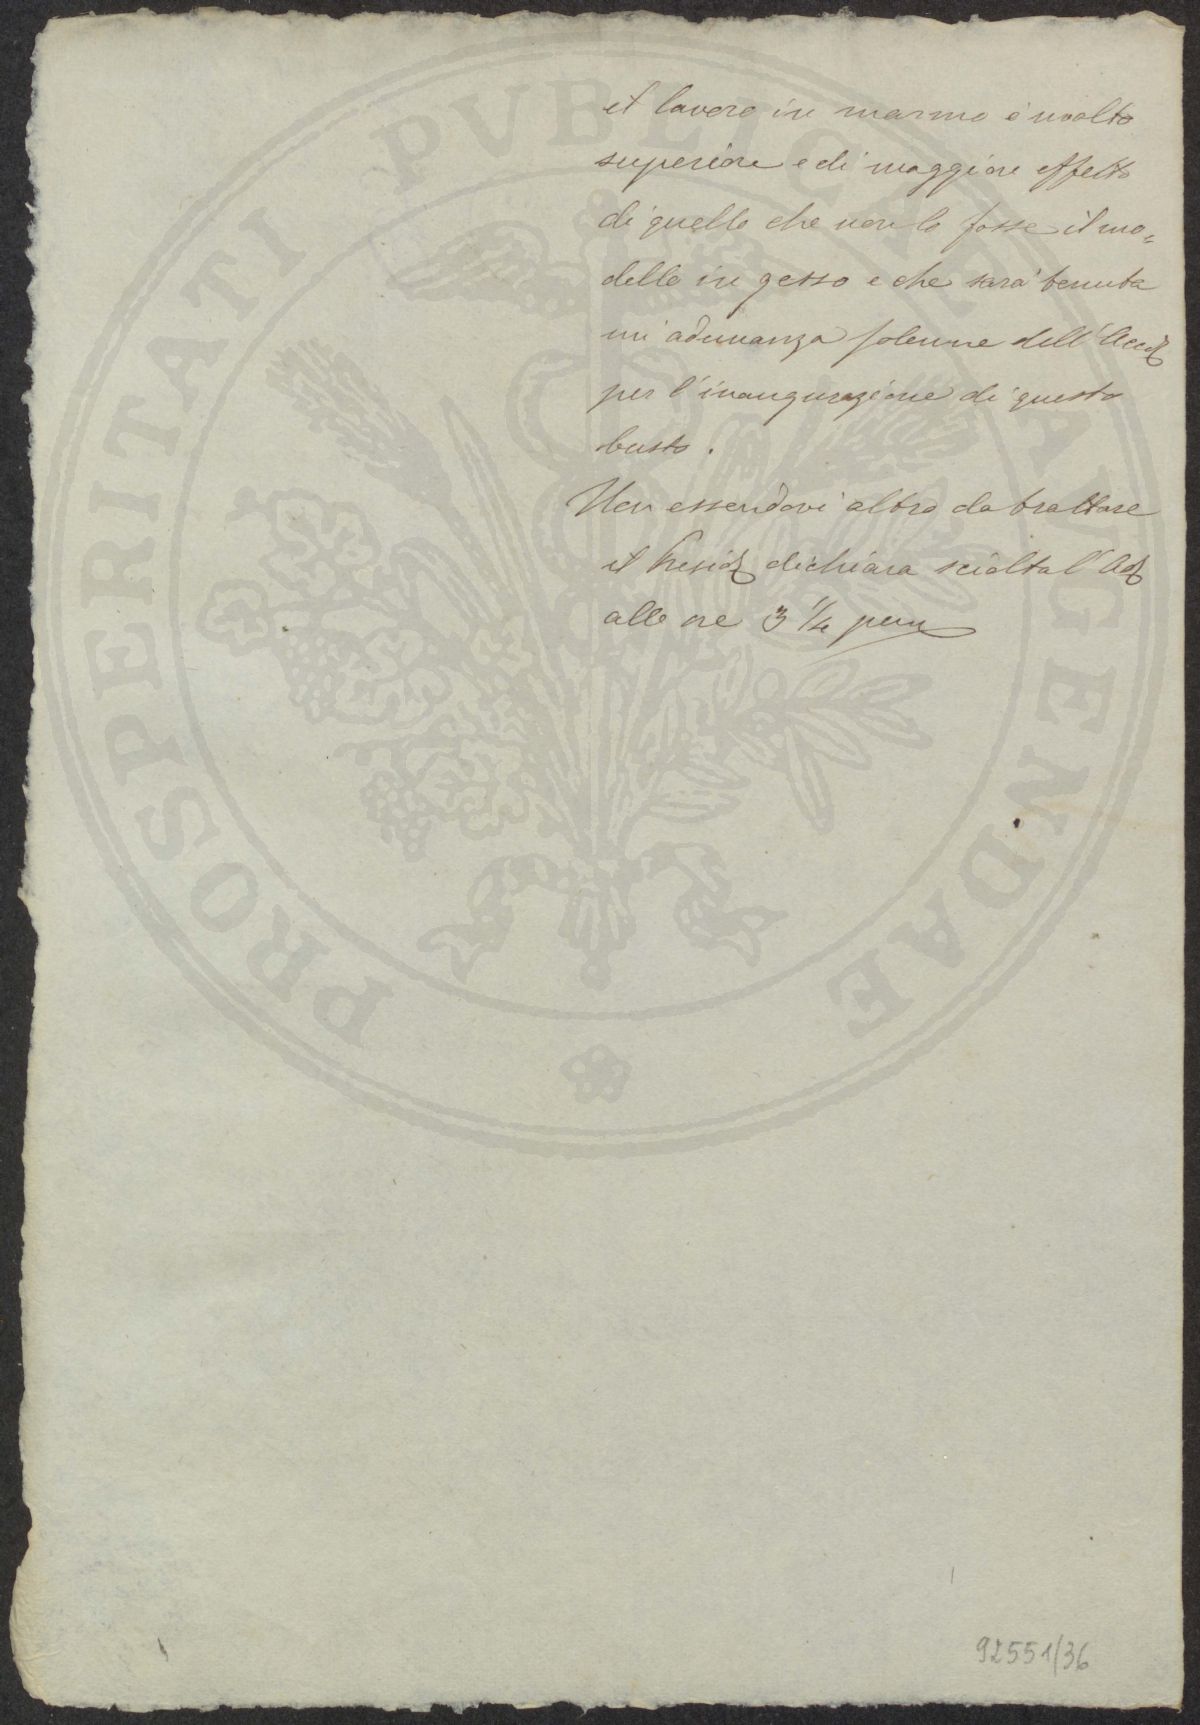 il lavoro in marmo è molto
superiore e di maggiore effetto
di quello che non lo fosse il mo=
dello in gesso e che sarà tenuta
un'adunanza solenne dell'Accad
per l'inaugurazione di questo
busto.
Non essendovi altro da trattare
il Presid dichiara sciolta l'Ad
alle ore 3 1/4 pom
92551/36
PROSPERITATI PVBLICAE AVGENDAE